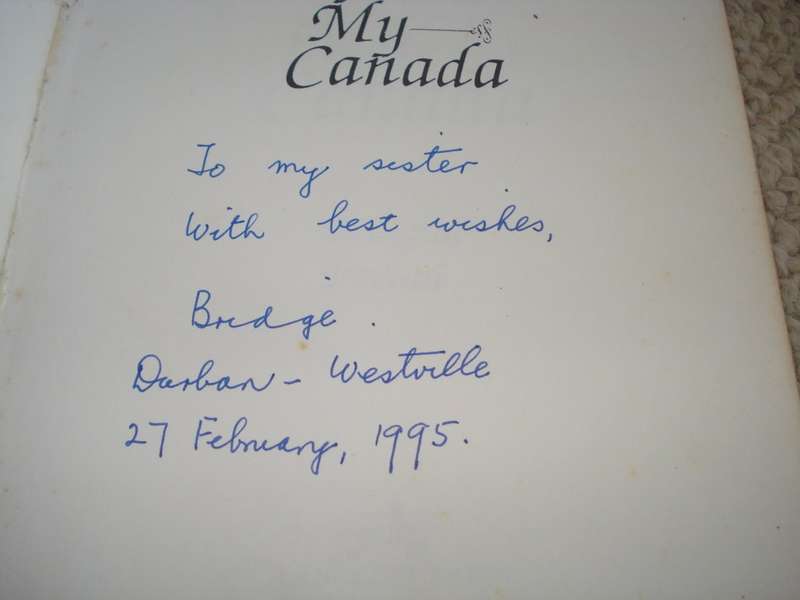 My
Canada
To my sister
With best wishes,
Bridge.
Durban - Westville
27 February, 1995.